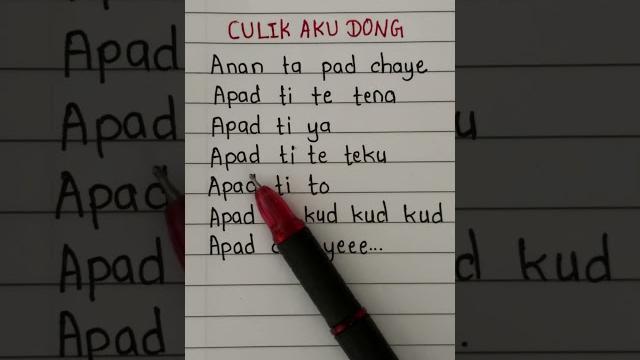 CULIK AKU DONG
Anan ta pad chaye
Apad ti te tena
Apad ti ya
Apad ti te teku
Apad ti to
Apad kud kud kud
Apad yeee...